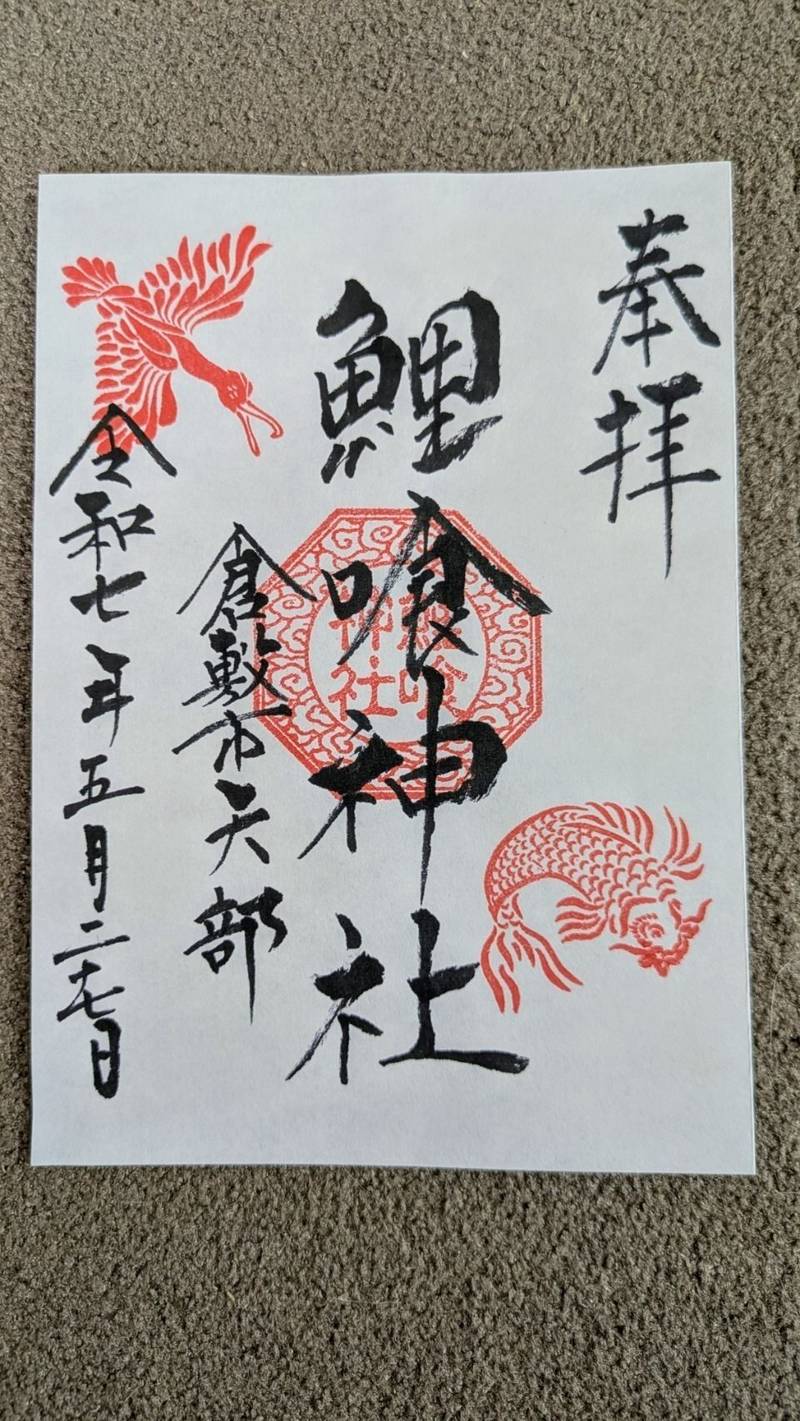 奉拝
鯉喰神社
鯉喰
神社
倉敷市矢部
令和七年五月二十七日